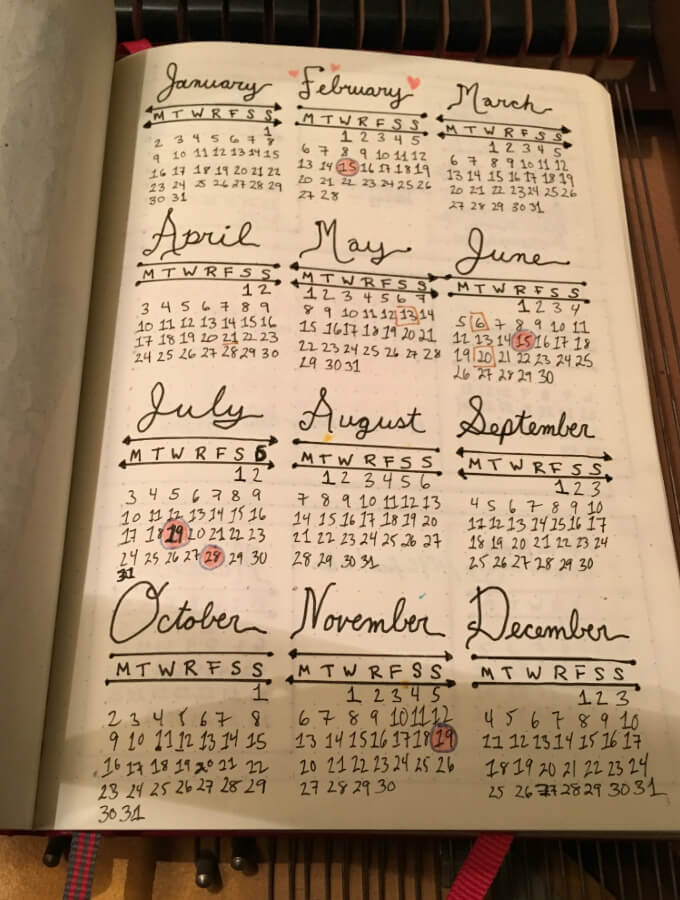 January
M T W R F S S
1
2 3 4 5 6 7 8
9 10 11 12 13 14 15
16 17 18 19 20 21 22
23 24 25 26 27 28 29
30 31
February
M T W R F S S
1 2 3 4 5
6 7 8 9 10 11 12
13 14 15 16 17 18 19
20 21 22 23 24 25 26
27 28
March
M T W R F S S
1 2 3 4 5
6 7 8 9 10 11 12
13 14 15 16 17 18 19
20 21 22 23 24 25 26
27 28 29 30 31
April
M T W R F S S
1 2
3 4 5 6 7 8 9
10 11 12 13 14 15 16
17 18 19 20 21 22 23
24 25 26 27 28 29 30
May
M T W R F S S
1 2 3 4 5 6 7
8 9 10 11 12 13 14
15 16 17 18 19 20 21
22 23 24 25 26 27 28
29 30 31
June
M T W R F S S
1 2 3 4
5 6 7 8 9 10 11
12 13 14 15 16 17 18
19 20 21 22 23 24 25
26 27 28 29 30
July
M T W R F S S
1 2
3 4 5 6 7 8 9
10 11 12 13 14 15 16
17 18 19 20 21 22 23
24 25 26 27 28 29 30
31
August
M T W R F S S
1 2 3 4 5 6
7 8 9 10 11 12 13
14 15 16 17 18 19 20
21 22 23 24 25 26 27
28 29 30 31
September
M T W R F S S
1 2 3
4 5 6 7 8 9 10
11 12 13 14 15 16 17
18 19 20 21 22 23 24
25 26 27 28 29 30
October
M T W R F S S
1
2 3 4 5 6 7 8
9 10 11 12 13 14 15
16 17 18 19 20 21 22
23 24 25 26 27 28 29
30 31
November
M T W R F S S
1 2 3 4 5
6 7 8 9 10 11 12
13 14 15 16 17 18 19
20 21 22 23 24 25 26
27 28 29 30
December
M T W R F S S
1 2 3
4 5 6 7 8 9 10
11 12 13 14 15 16 17
18 19 20 21 22 23 24
25 26 27 28 29 30 31